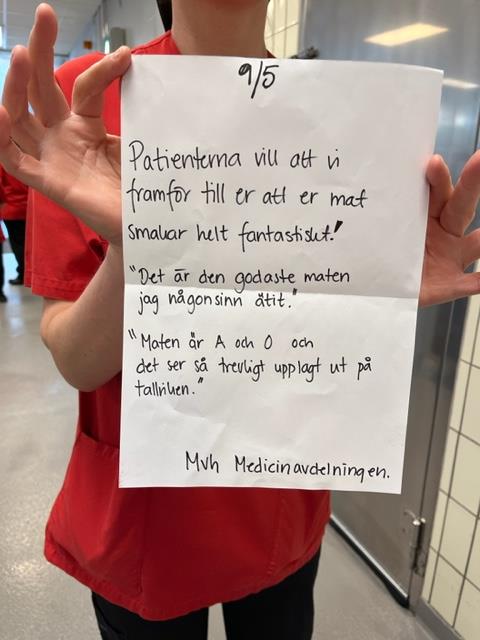 9/5
Patienterna vill att vi
framför till er att er mat
smakar helt fantastiskt!
"Det är den godaste maten
jag någonsinn ätit."
"Maten är A och O och
det ser så trevligt upplagt ut på
tallriken."
Mvh Medicinavdelningen.